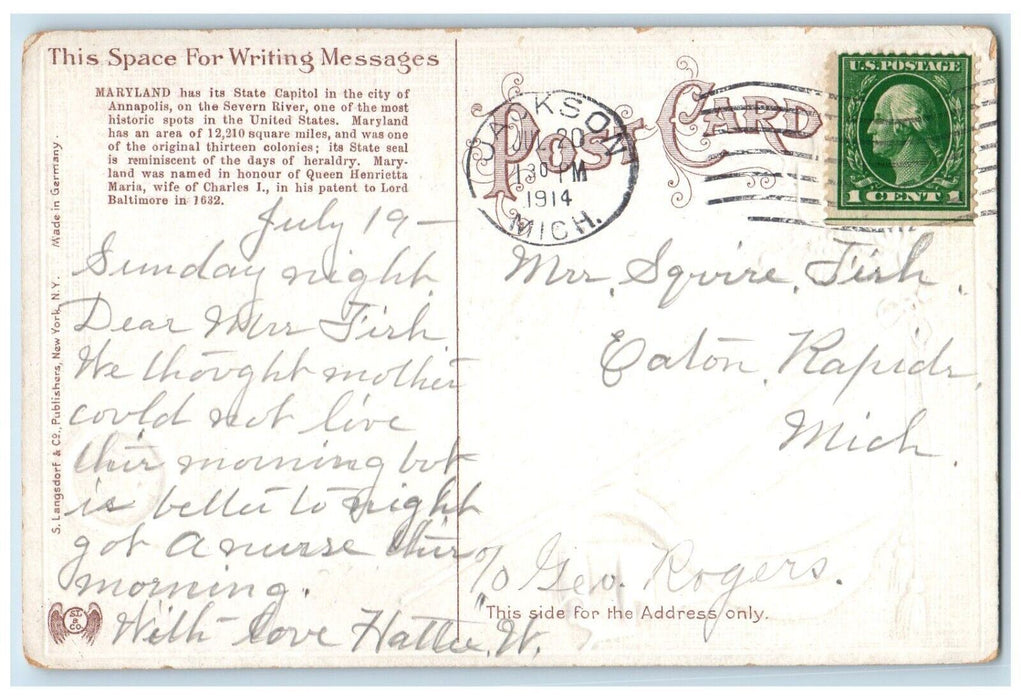 This Space For Writing Messages
MARYLAND has its State Capitol in the city of
Annapolis, on the Severn River, one of the most
historic spots in the United States. Maryland
has an area of 12,210 square miles, and was one
of the original thirteen colonies; its State seal
is reminiscent of the days of heraldry. Mary-
land was named in honour of Queen Henrietta
Maria, wife of Charles I., in his patent to Lord
Baltimore in 1632.
July 19 –
Sunday night.
Dear Mrs Fish
We thought mother
could not live
this morning but
is better to night
got a nurse this
morning.
With love Hattie. W.
S. Langsdorf & Co., Publishers, New York, N.Y. Made in Germany.
S.L. & CO.
POST CARD
JACKSON
JUL 20
130 PM
1914
MICH.
U.S. POSTAGE
1 CENT 1
Mrs. Squire. Fish.
Eaton. Rapids.
Mich.
c/o Geo. Rogers.
This side for the Address only.